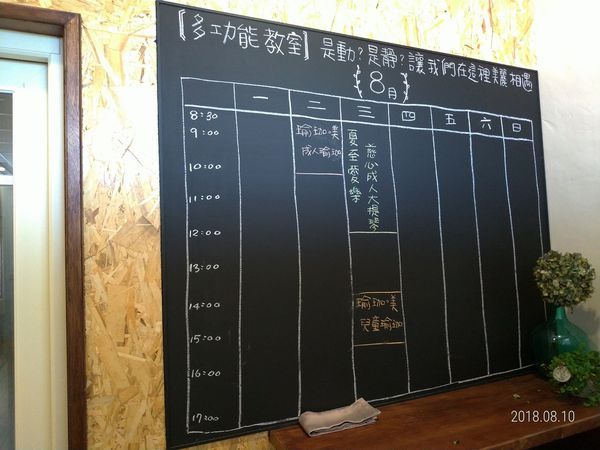 【多功能教室】是動?是靜?讓我們在這裡美麗相遇
{8月}
一 二 三 四 五 六 日
8:30
9:00
10:00
11:00
12:00
13:00
14:00
15:00
16:00
17:00
瑜珈·美
成人瑜珈
夏至愛樂
慈心成人大提琴
瑜珈·美
兒童瑜珈
2018.08.10